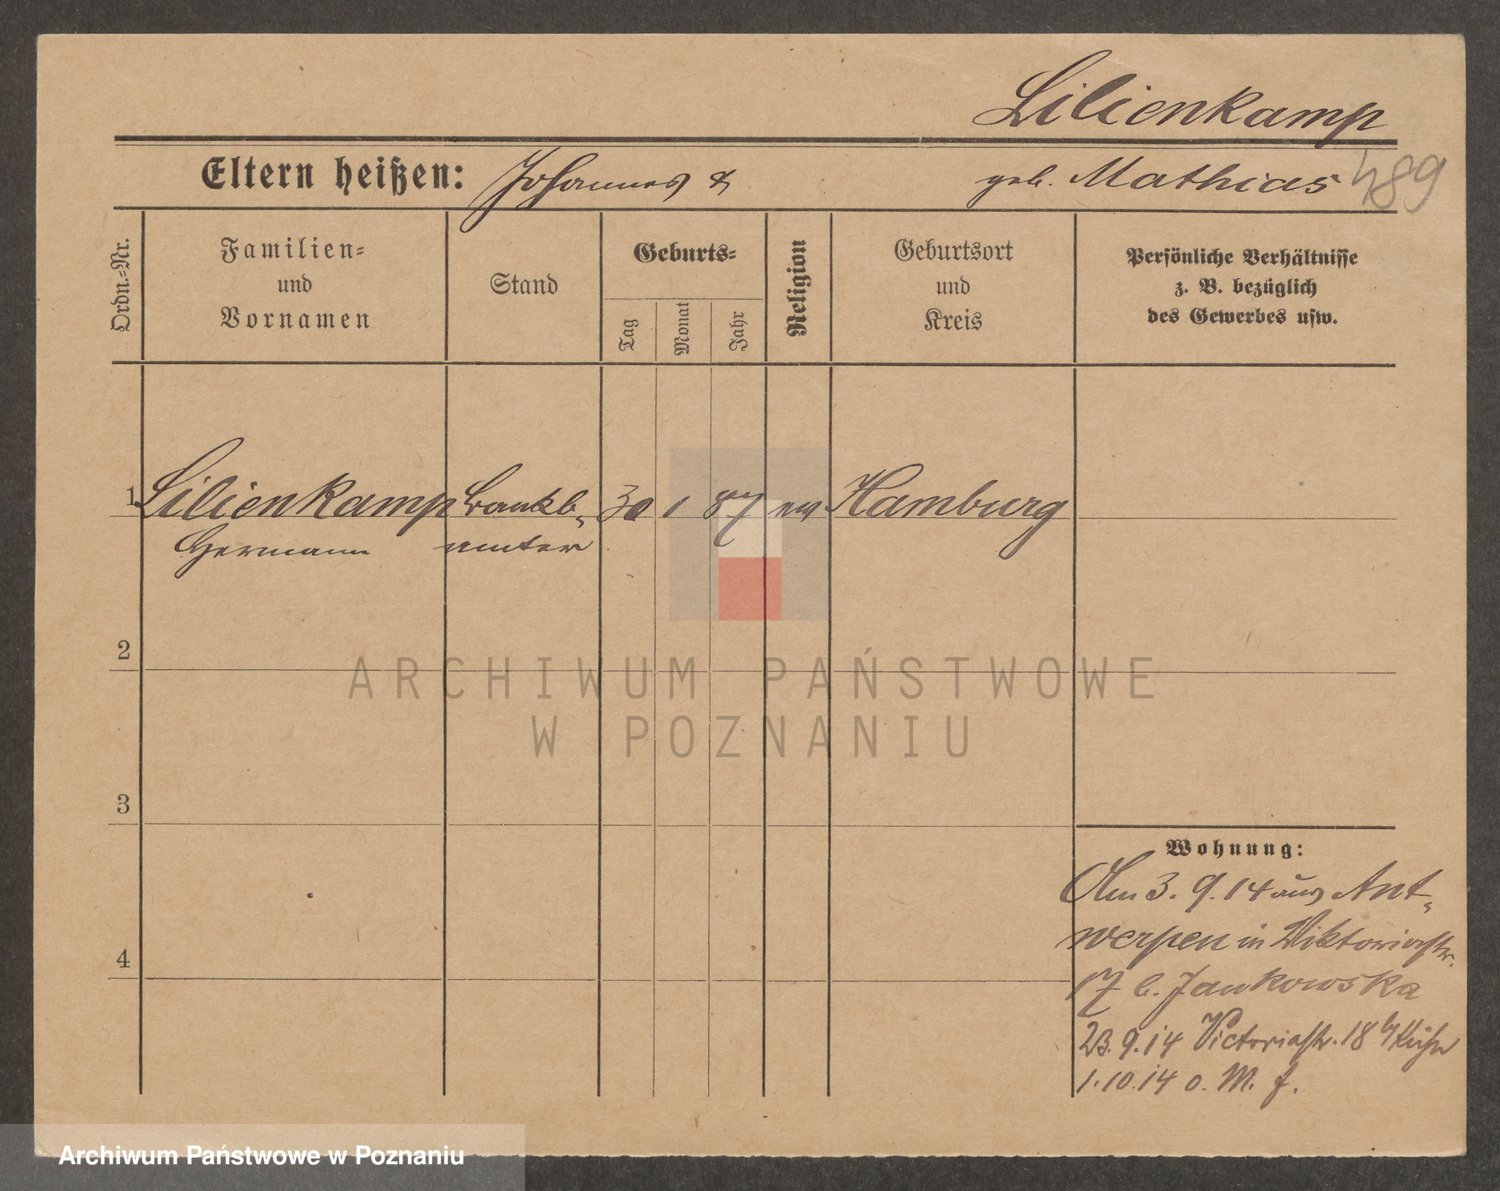 Lilienkamp
Eltern heißen: Johannes & geb. Mathias 489
Ordn.=Nr.
Familien=
und
Vornamen
Stand
Geburts=
Tag
Monat
Jahr
Religion
Geburtsort
und
Kreis
Persönliche Verhältnisse
z. B. bezüglich
des Gewerbes usw.
1 Lilienkamp Bankb= 30 1 87 ev Hamburg
Hermann amter
2
ARCHIWUM PAŃSTWOWE
W POZNANIU
3
Wohnung:
Am 3. 9. 14 aus Ant=
4
werpen in Viktoriastr.
17 b. Jankowska
23. 9. 14 Victoriastr. 18 b/ Kuhn
1. 10. 14 o. M. f.
Archiwum Państwowe w Poznaniu